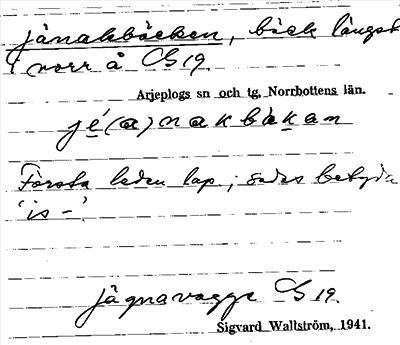 jånakbäcken, bäck längst
i norr å CS 19.
Arjeplogs sn och tg, Norrbottens län.
jé(a)nakbäkan
Första leden lap; sades betyda
'is-'
jågnavagge CS 19.
Sigvard Wallström, 1941.